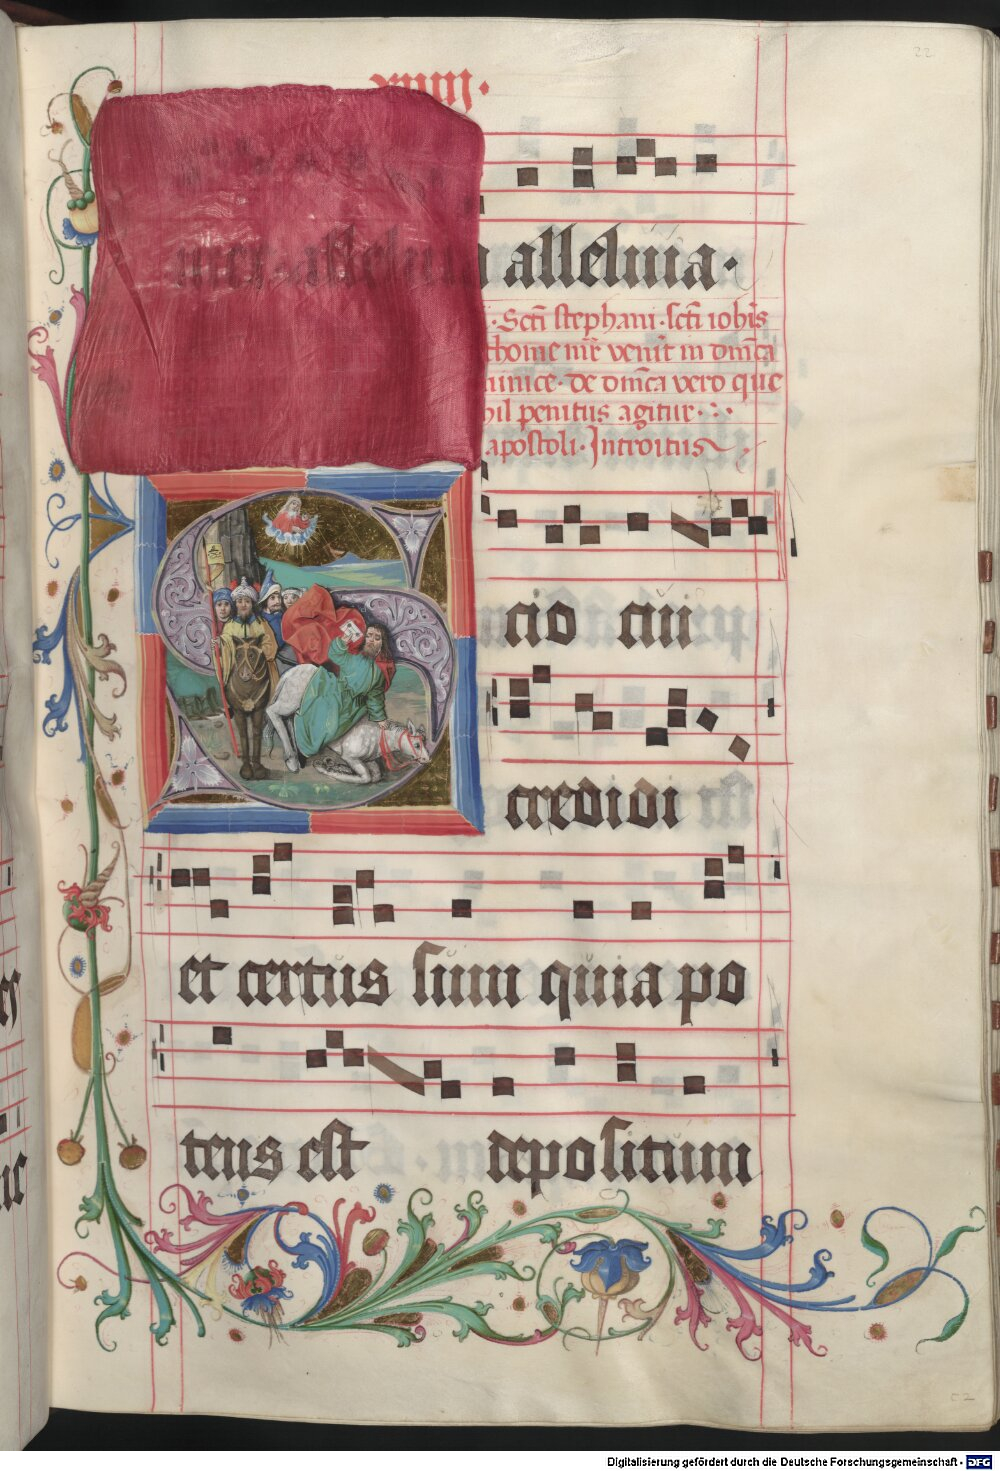 xviiij.
alleluia.
Scti stephani. scti iohis
thome mr venit in dmca
minice. de dmca vero que
hil penitus agitur.
apostoli. Introitus
S
cio cui
credidi
et certus sum quia po
tens est depositum
22
Digitalisierung gefördert durch die Deutsche Forschungsgemeinschaft - DFG